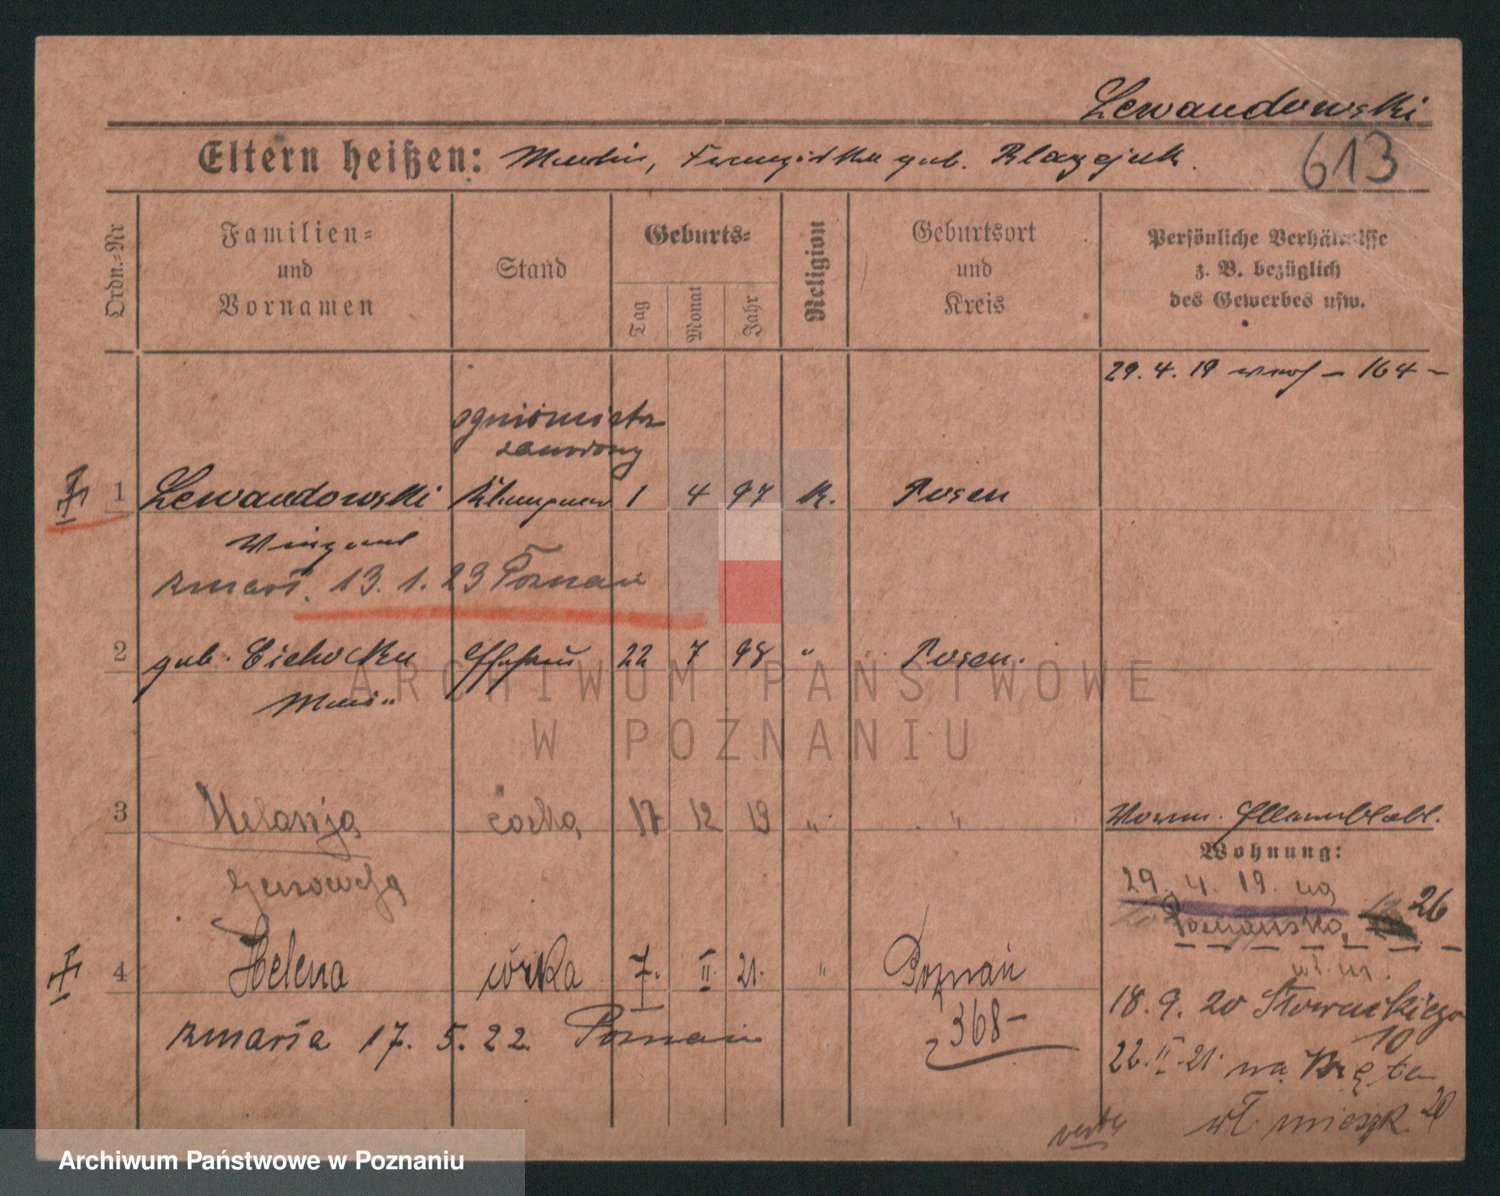 Lewandowski
613
Eltern heißen: Martin, Franziska geb. Blazejak.
Ordn.-Nr
Familien- und Vornamen
Stand
Geburts-
Tag
Monat
Jahr
Religion
Geburtsort und Kreis
Persönliche Verhältnisse z. B. bezüglich des Gewerbes usw.
29. 4. 19 164 -
ogniomistrz
zawodowy
1 Lewandowski Klempner 1 4 97 K. Posen
Vinzent
zmarł. 13. 1. 23 Poznań
2 geb. Cichocka Ehefrau 22 7 98 " Posen.
Maria
3 Melanja córka 17 12 19 " "
Genowefa
Wohnung:
29. 4. 19. na
26
4 Helena córka 7. II 21. " Poznań
368-
zmarła 17. 5. 22. Poznań
18. 9. 20 Słowackiego
10
22. II. 21. na Krętą
20
wł. mieszk.
verte
ARCHIWUM PAŃSTWOWE
W POZNANIU
Archiwum Państwowe w Poznaniu